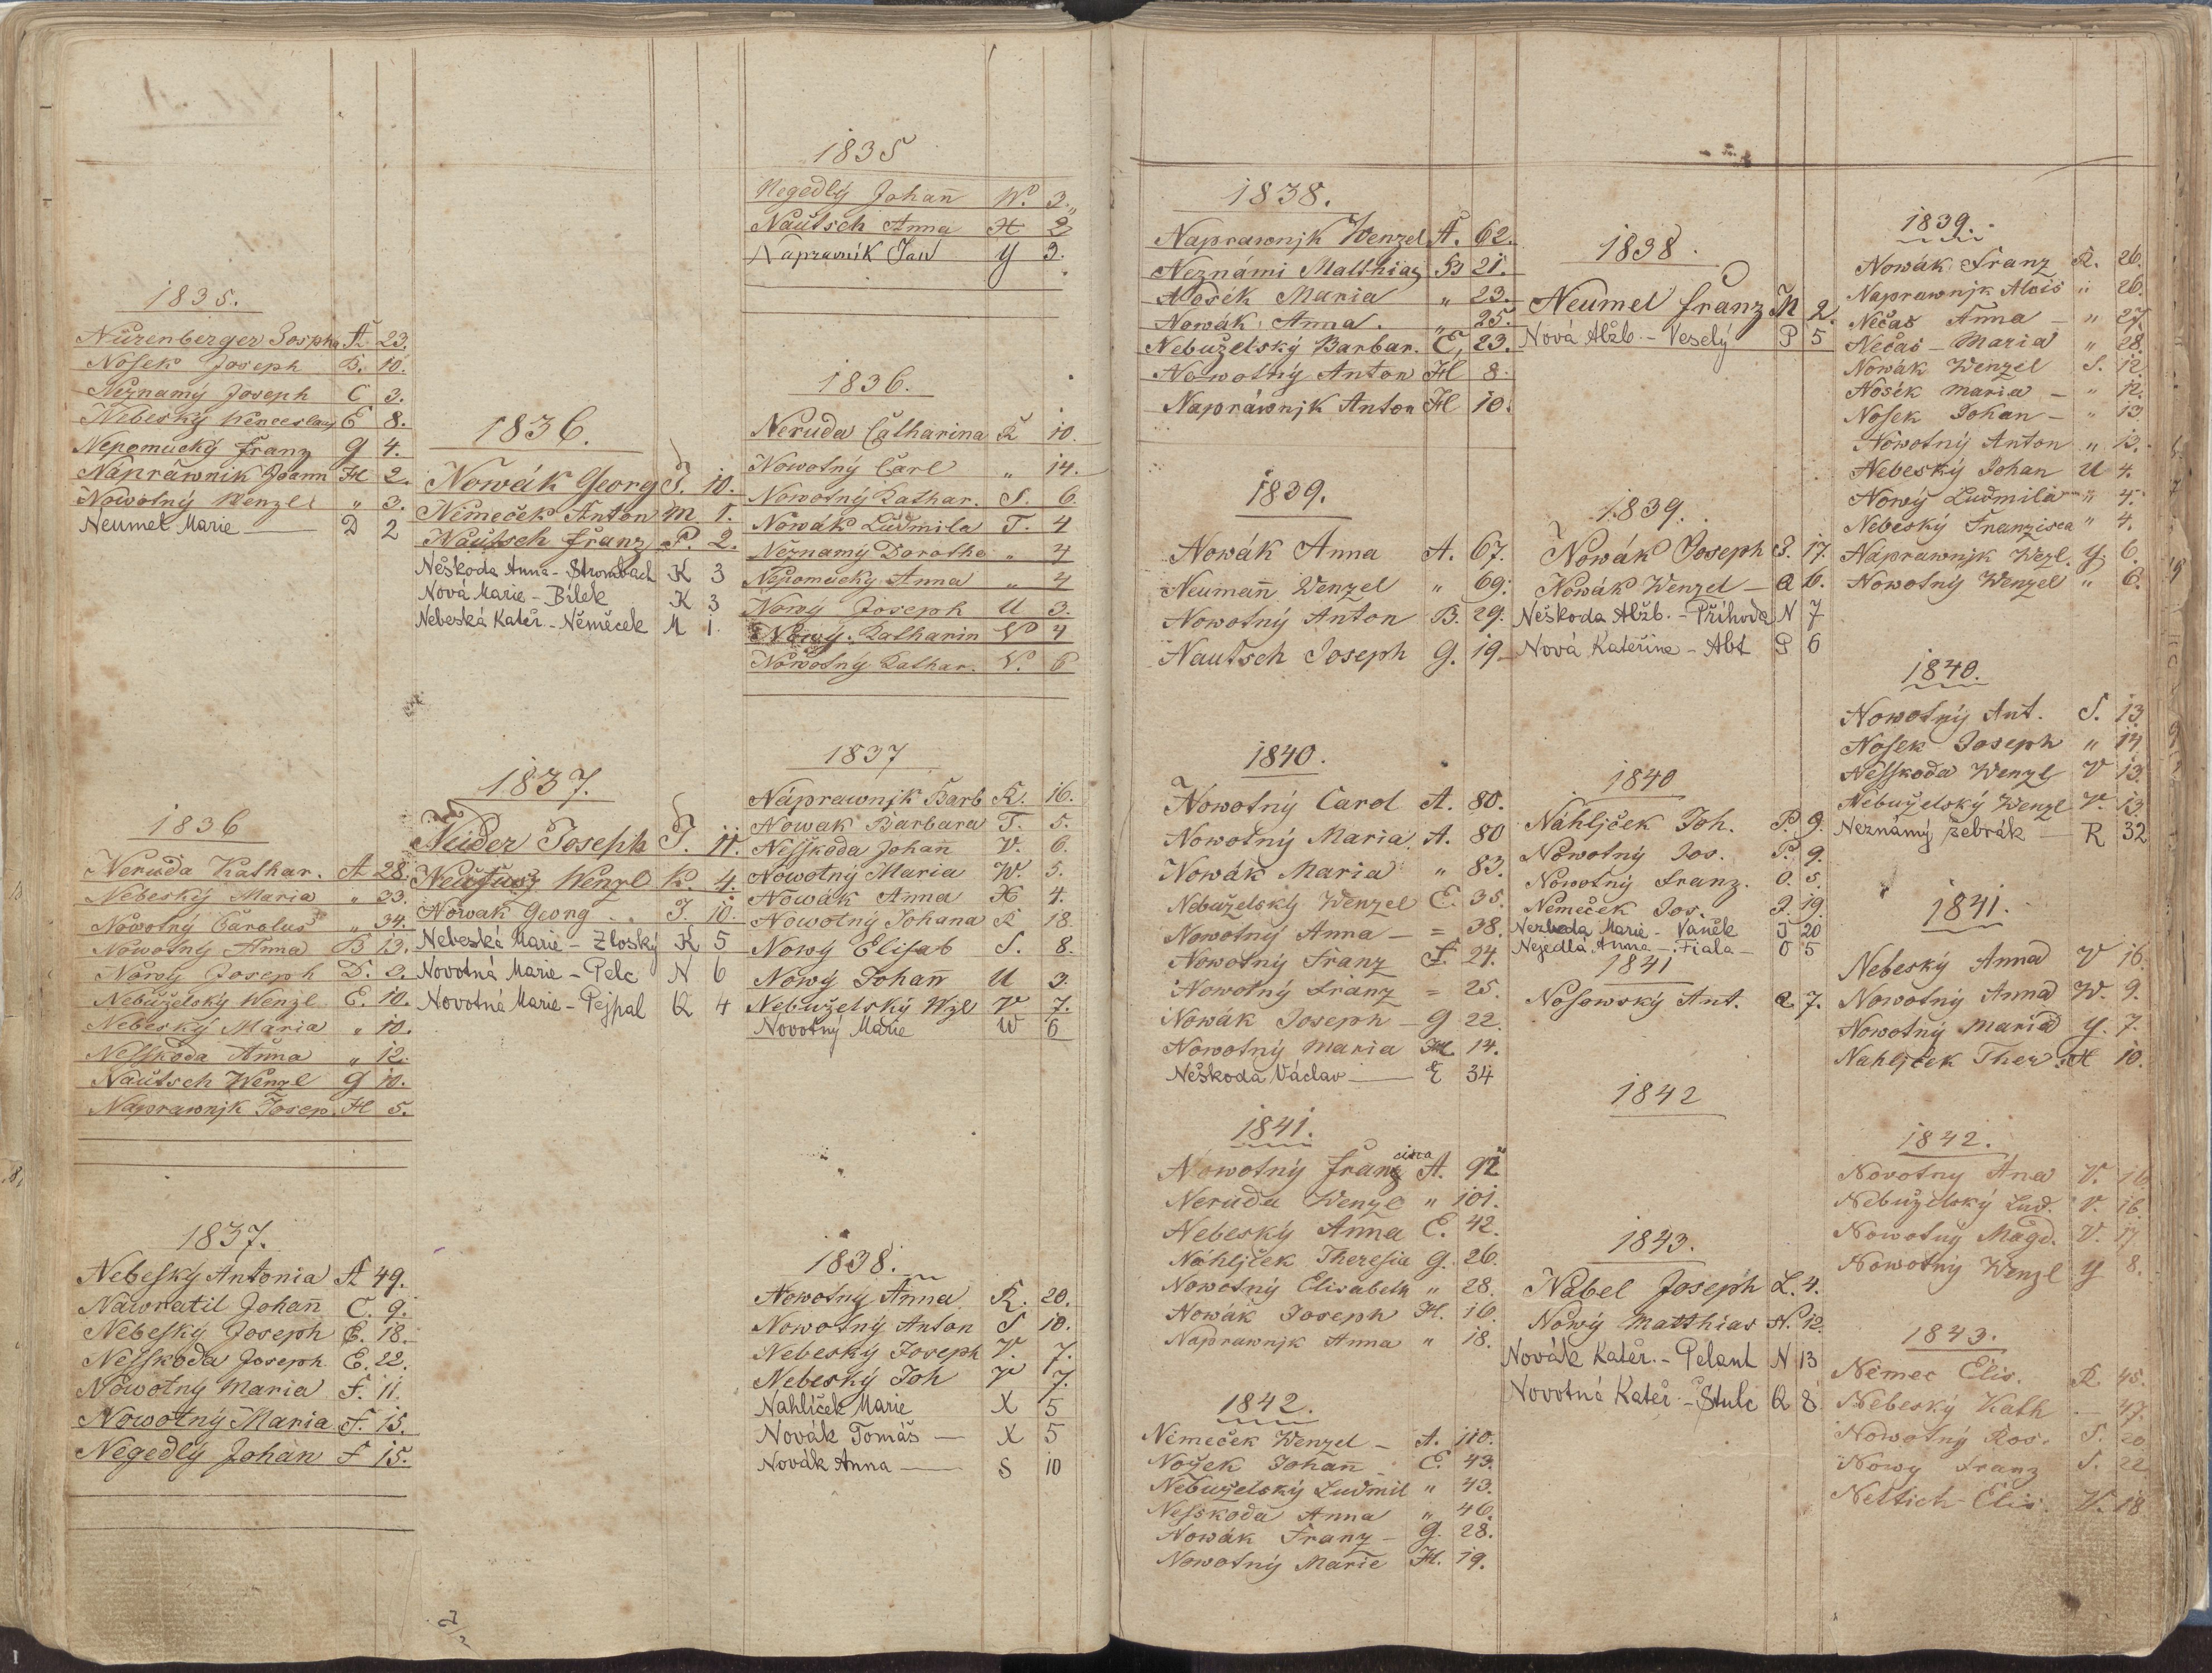 1835.
Nürenberger Josepha A 23.
Nosek Joseph B. 10.
Neznamý Joseph C 3.
Nebeský Wenceslaus E 8.
Nepomucký Franz G 4.
Náprawnik Joann H 2.
Nowotný Wenzl " 3.
Neumel Marie — D 2
1836
Neruda Kathar. A 28.
Nebeský Maria " 33.
Nowotný Carolus " 34.
Nowotný Anna B 13.
Nowý Joseph D. 2.
Nebuželský Wenzl E. 10.
Nebeský Maria " 10.
Nesskoda Anna " 12.
Nautsch Wenzl G 10.
Naprawnjk Josep. H 5.
1837.
Nebeský Antonia A 49.
Nawratil Johan̄ C. 9.
Nebeský Joseph E. 18.
Nesskoda Joseph E. 22.
Nowotný Maria F. 11.
Nowotný Maria F. 15.
Negedlý Johan F 15.
1836.
Nowák Georg J. 10.
Nemeček Anton M 1.
Nautsch Franz P. 2.
Neškoda Anna - Strombach K 3
Nová Marie - Bílek K 3
Nebeská Kateř. - Němeček M 1.
1837.
Nuder Joseph J. 11.
Wenzl K. 4.
Nowak Georg J. 10.
Nebeská Marie - Zloský K 5
Novotná Marie - Pelc N 6
Novotná Marie - Pejpal Q 4
1835
Negedlý Johan̄ W. 3.
Nautsch Anna H 2
Napravník Jan Y 3.
1836.
Neruda Catharina R 10.
Nowotný Carl " 14.
Nowotný Kathar. S. 6.
Nowák Ludmila T. 4
Neznamý Dorothe " 4
Nepomucký Anna " 4
Nowý Joseph U 3.
Nowý Katharin V 4
Nowotný Kathar. V. 6
1837
Náprawnjk Barb R. 16.
Nowak Barbara T. 5.
Nesskoda Johan̄ V. 6.
Nowotný Maria W. 5.
Nowák Anna X 4.
Nowotný Johana R 18.
Nowý Elisab S. 8.
Nowý Johan̄ U 3.
Nebuželský Wzl V 7.
Novotný Marie W 6
1838.
Nowotný Anna R. 20.
Nowotný Anton S 10.
Nebeský Joseph V. 7.
Nebeský Joh V 7.
Nahlíček Marie X 5
Novák Tomáš — X 5
Novák Anna — S 10
1838.
Naprawnjk Wenzel A. 62.
Neznámi Matthias B 21.
Nosek Maria " 23.
Nowák Anna. " 25.
Nebuželský Barbar. E, 23.
Nowotný Anton H 8.
Napráwnjk Anton H 10.
1839.
Nowák Anna A. 67.
Neuman̄ Wenzel " 69.
Nowotný Anton B. 29.
Nautsch Joseph G. 19.
1840.
Nowotný Carol A. 80.
Nowotný Maria A. 80
Nowák Maria " 83.
Nebuželský Wenzel E. 35.
Nowotný Anna — = 38.
Nowotný Franz F. 24.
Nowotný Franz = 25.
Nowák Joseph — G 22.
Nowotný Maria H 14.
Neškoda Václav — E 34
1841.
Nowotný Franzisca A. 92
Neruda Wenzl " 101.
Nebeský Anna E. 42.
Náhljček Theresia G. 26.
Nowotný Elisabeth " 28.
Nowák Joseph H. 16.
Naprawnjk Anna " 18.
1842.
Nemeček Wenzel — A. 110.
Nosek Johan̄ E. 43.
Nebuželský Ludmil " 43.
Nesskoda Anna " 46.
Nowák Franz — G. 28.
Nowotný Marie H. 19.
1838.
Neumel Franz M 2.
Nová Alžb. - Veselý P 5
1839.
Nowák Joseph P. 17.
Nowák Wenzel — Q 6.
Neškoda Alžb. - Příhoda N 7
Nová Kateřine - Abt P 6
1840
Náhljček Joh. P. 9.
Nowotný Jos. P. 9.
Nowotný Franz. O. 5.
Nemeček Jos. J. 19.
Nezbeda Marie - Vaněk J 20
Nejedlá Anna - Fiala — O 5
1841
Nosowský Ant. Q 7.
1842
1843.
Nabel Joseph L. 4.
Nowý Matthias N. 12.
Novák Kateř. - Pelant N 13
Novotná Kateř. - Štulc Q 8
1839.
Nowák Franz R. 26.
Naprawnjk Alois " 26.
Nečas Anna — " 27.
Nečas — Maria " 28.
Nowák Wenzel S. 12.
Nosék Maria — " 12.
Nosek Johan — " 13
Nowotný Anton " 13.
Nebeský Johan U 4.
Nowý Ludmila " 4.
Nebeský Franzisca " 4.
Náprawnjk Wezl. Y. 6.
Nowotný Wenzel " 6.
1840.
Nowotný Ant. S. 13.
Nosek Joseph " 14
Nesskoda Wenzl V 13.
Nebuželský Wenzl V. 13.
Neznámý žebrák — R 32
1841.
Nebeský Anna V 16.
Nowotný Anna W. 9.
Nowotný Maria Y. 7.
Nahljček Ther. H 10.
1842.
Novotny Ana V. 16
Nebuželský Lud. V. 16.
Nowotný Magd. V. 17
Nowotný Wenzl Y 8.
1843.
Nemec Elis. R 45.
Nebeský Kath — 47.
Nowotný Ros. S. 20
Nowý Franz S. 22
Nettich Elis. V. 18